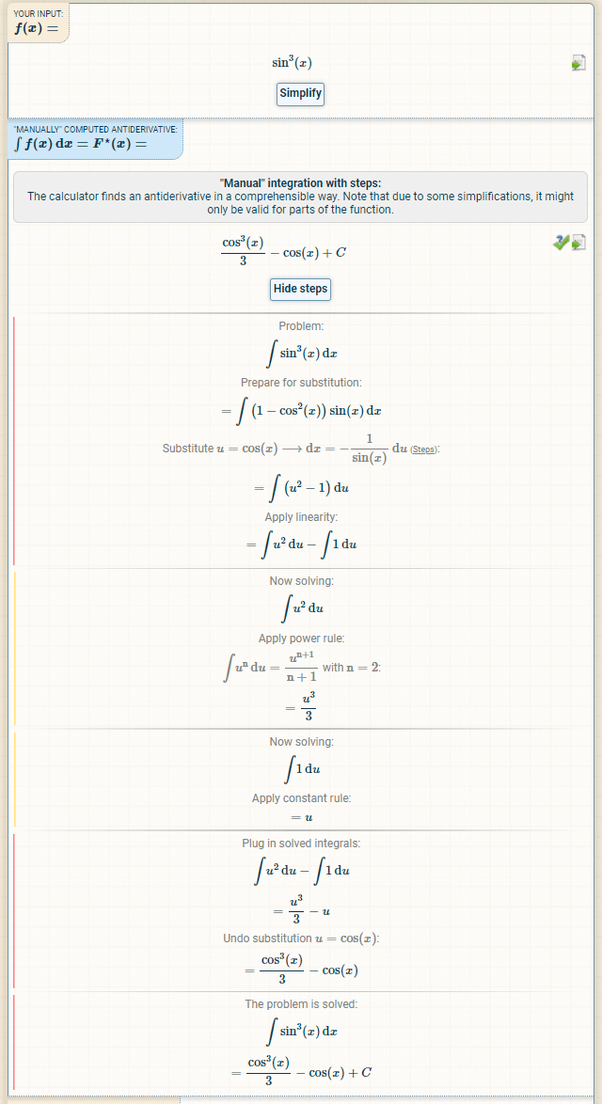 YOUR INPUT:
f(x) =
sin³(x)
Simplify
"MANUALLY" COMPUTED ANTIDERIVATIVE:
∫ f(x) dx = F*(x) =
"Manual" integration with steps:
The calculator finds an antiderivative in a comprehensible way. Note that due to some simplifications, it might
only be valid for parts of the function.
cos³(x)/3 − cos(x) + C
Hide steps
Problem:
∫ sin³(x) dx
Prepare for substitution:
= ∫ (1 − cos²(x)) sin(x) dx
Substitute u = cos(x) ⟶ dx = −1/sin(x) du (Steps):
= ∫ (u² − 1) du
Apply linearity:
= ∫ u² du − ∫ 1 du
Now solving:
∫ u² du
Apply power rule:
∫ uⁿ du = uⁿ⁺¹/(n + 1) with n = 2:
= u³/3
Now solving:
∫ 1 du
Apply constant rule:
= u
Plug in solved integrals:
∫ u² du − ∫ 1 du
= u³/3 − u
Undo substitution u = cos(x):
= cos³(x)/3 − cos(x)
The problem is solved:
∫ sin³(x) dx
= cos³(x)/3 − cos(x) + C